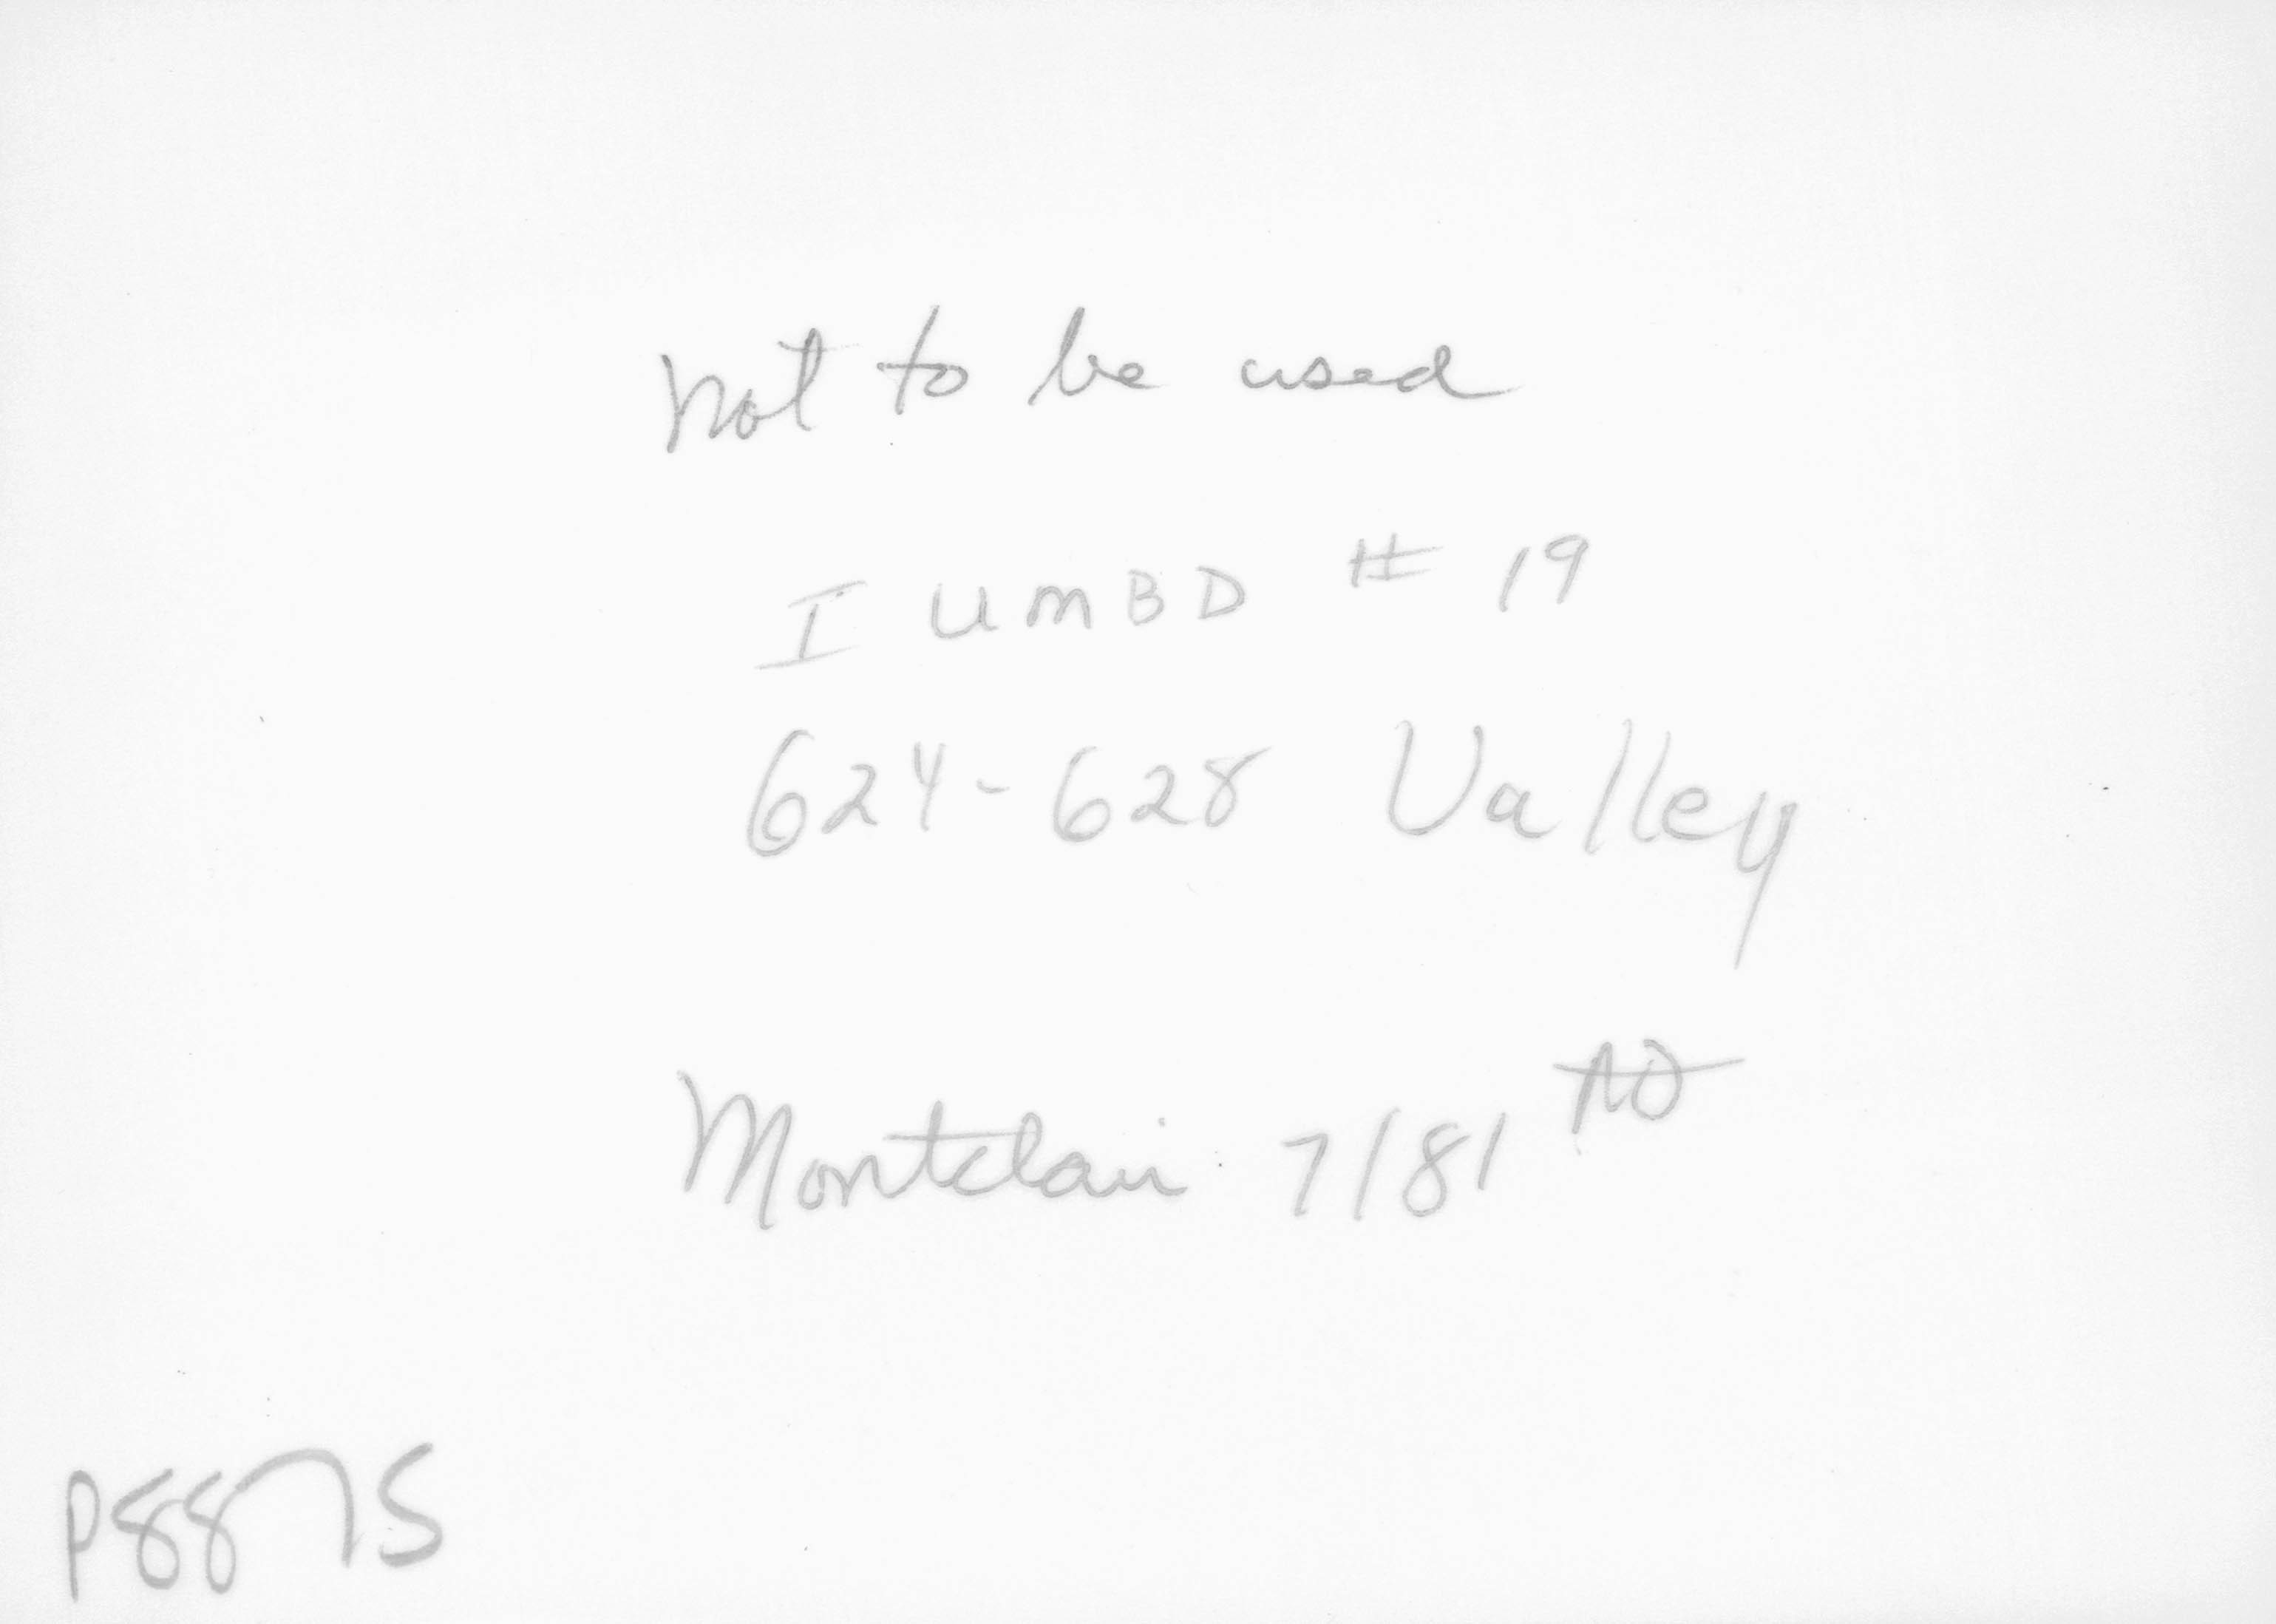 not to be used
I UMBD # 19
624-628 Valley
Montclair 7/81
P8875